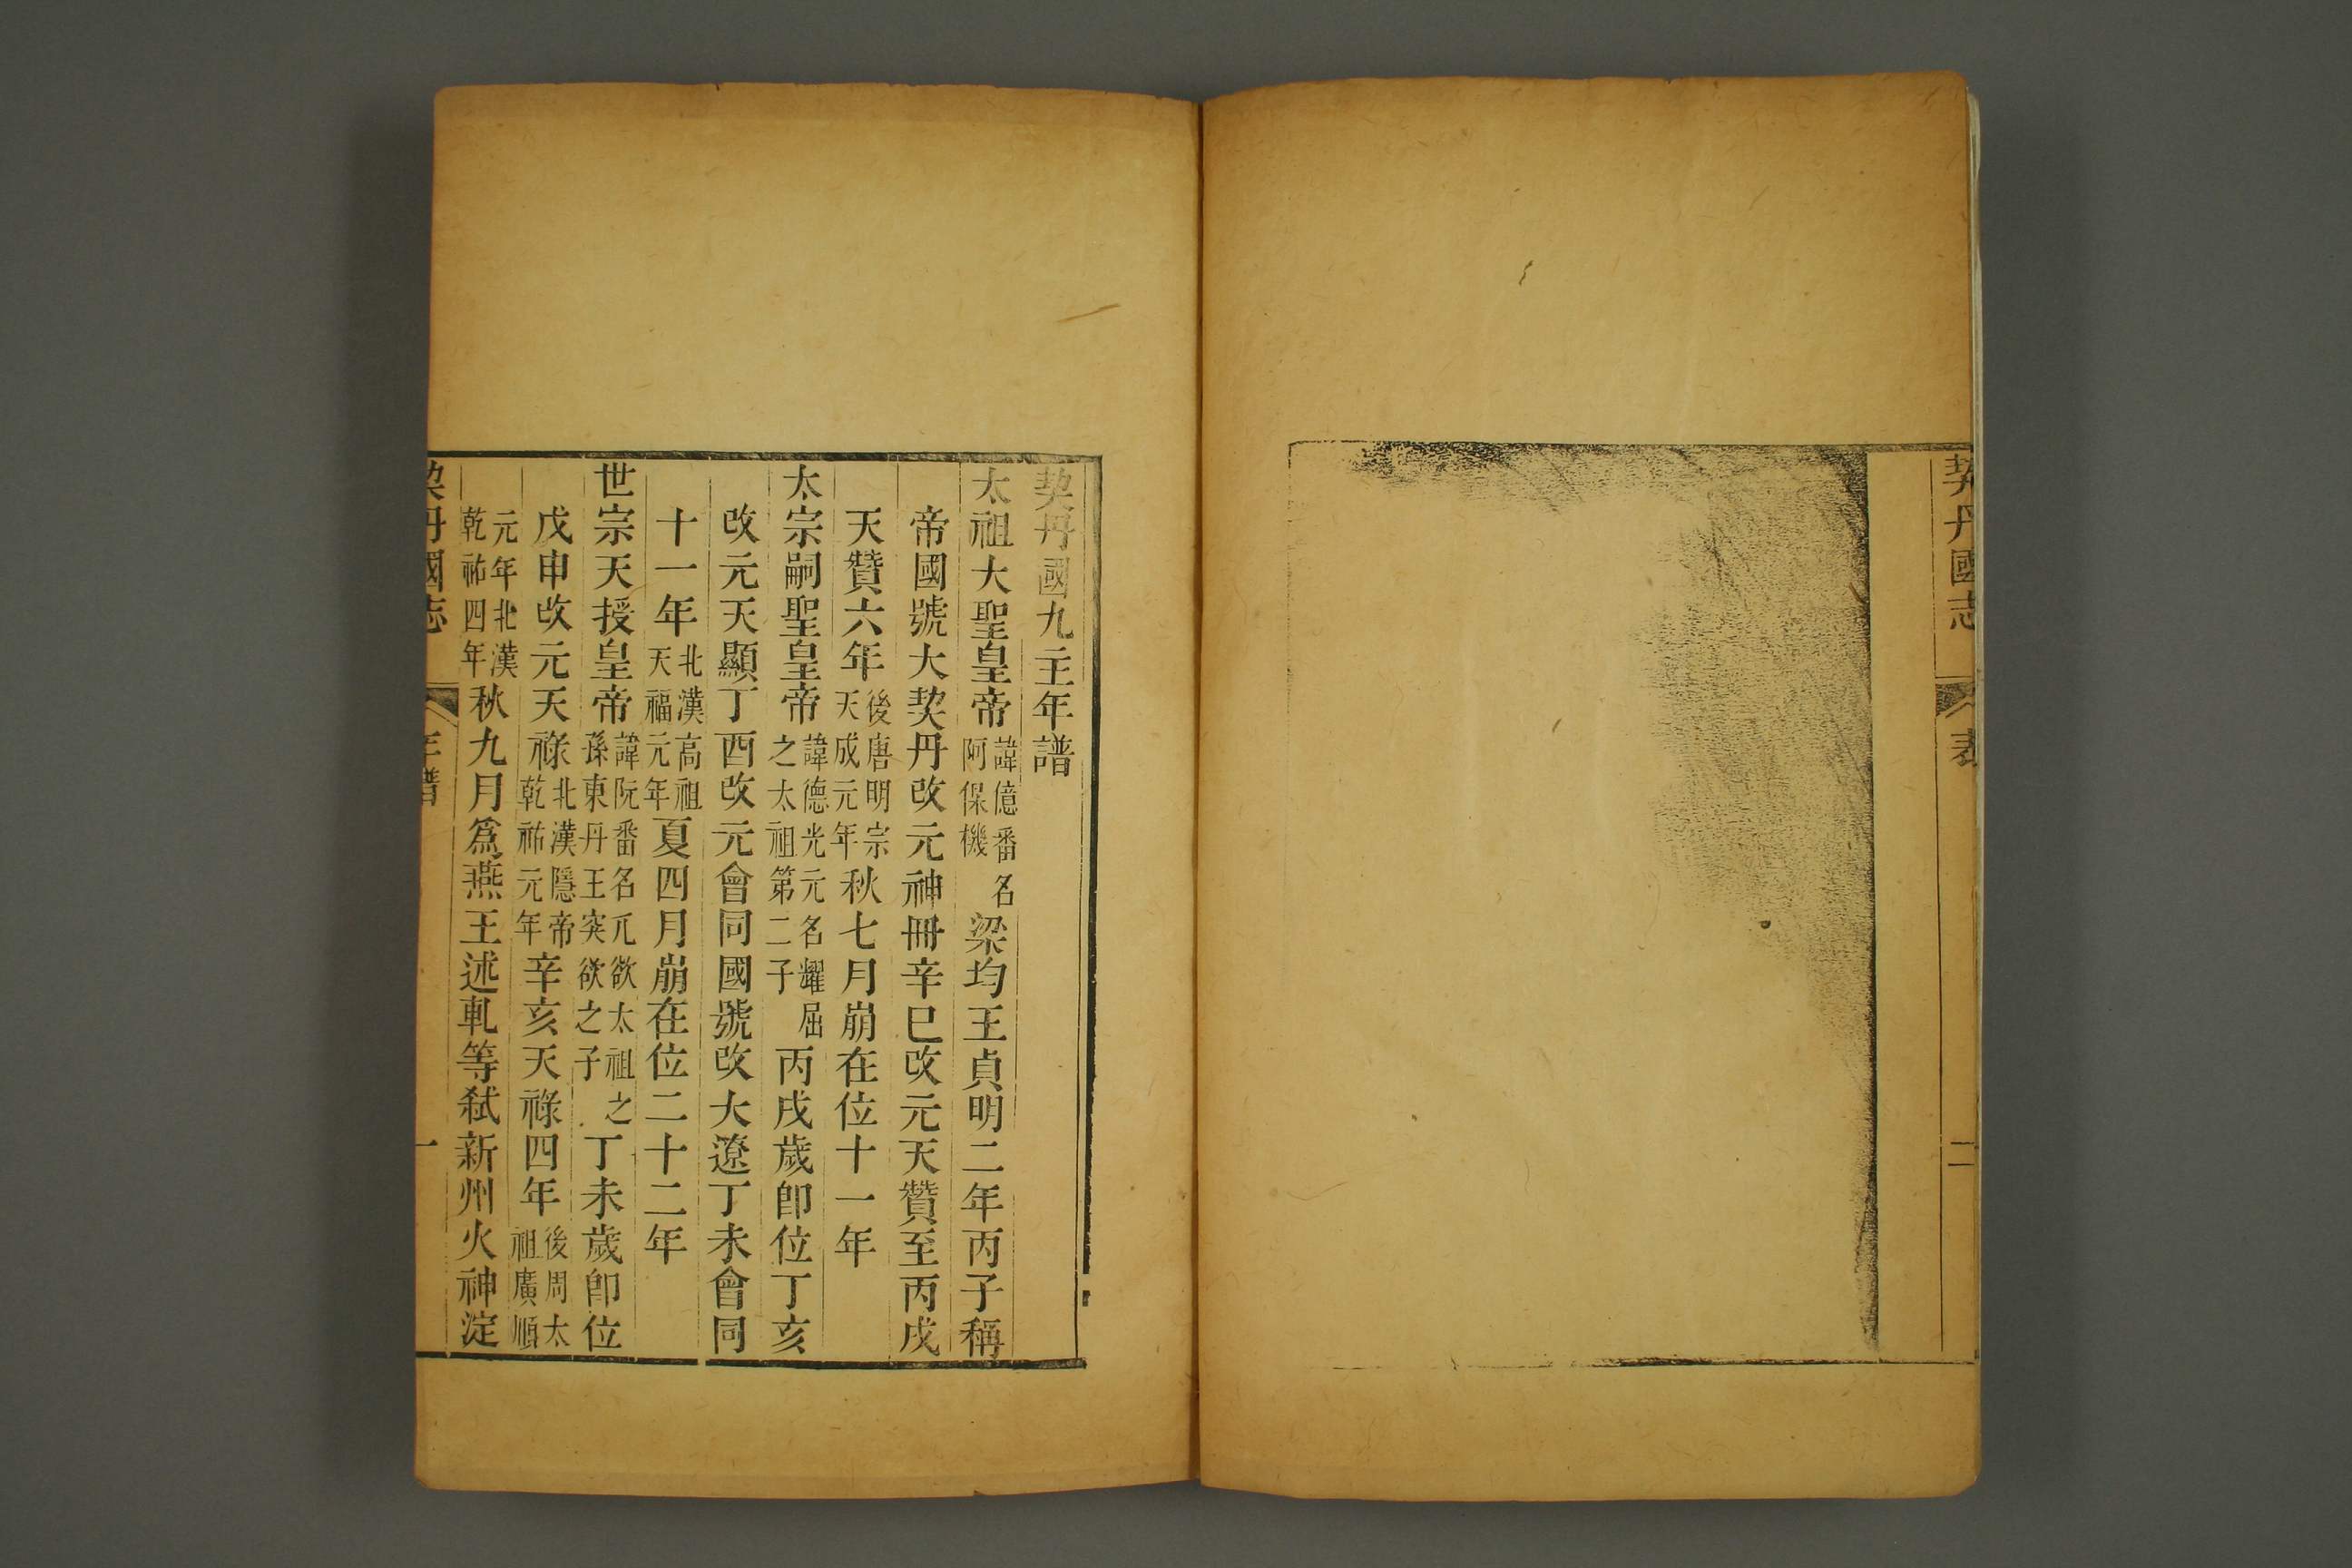 契丹國志
表
二
契丹國九主年譜
太祖大聖皇帝諱億番名阿保機梁均王貞明二年丙子稱
帝國號大契丹改元神冊辛巳改元天贊至丙戌
天贊六年後唐明宗天成元年秋七月崩在位十一年
太宗嗣聖皇帝諱德光元名耀屈之太祖第二子丙戌歲卽位丁亥
改元天顯丁酉改元會同國號改大遼丁未會同
十一年北漢高祖天福元年夏四月崩在位二十二年
世宗天授皇帝諱阮番名兀欲太祖之孫東丹王突欲之子丁未歲卽位
戊申改元天祿北漢隱帝乾祐元年辛亥天祿四年後周太祖廣順
元年北漢乾祐四年秋九月爲燕王述軋等弒新州火神淀
契丹國志
年譜
一